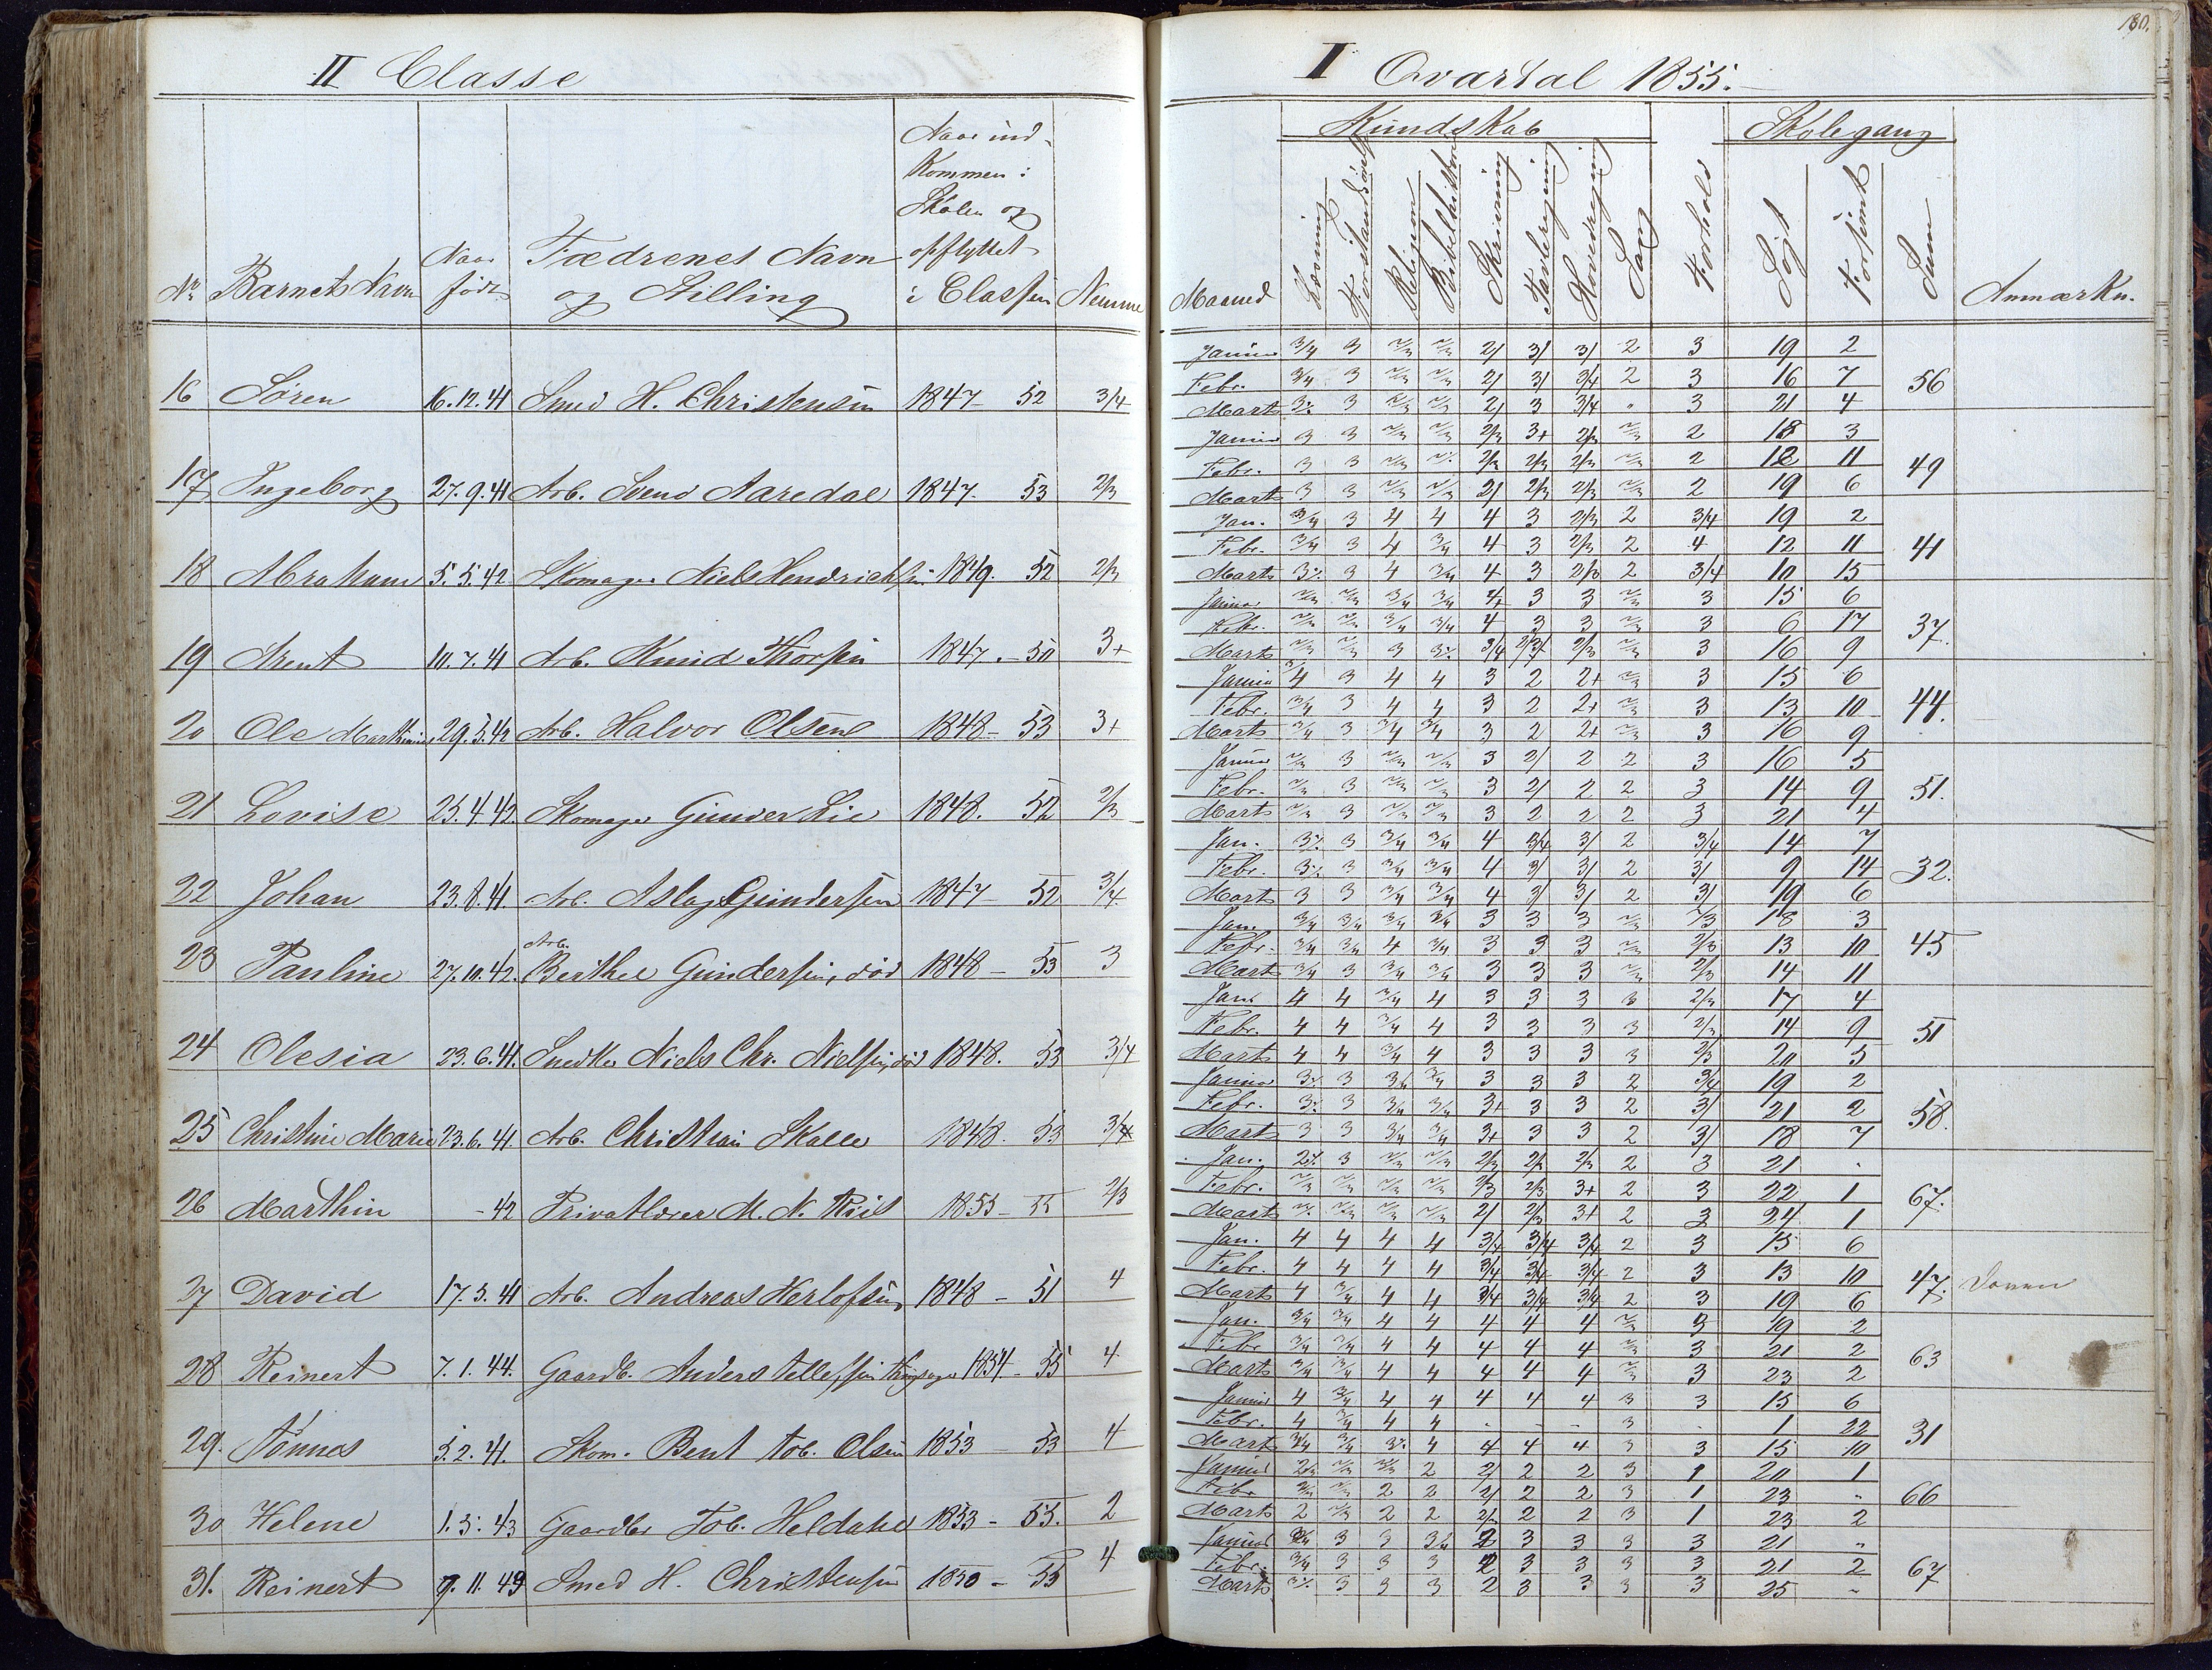 180.
II Classe
I Qvartal 1855.
Kundskab Skolegang
No Barnets Navn Naar født Fædrenes Navn og Stilling Naar indkommen i Skolen og opflyttet i Classen Nemme
Maaned Læsning Forstandsøvelse Religion Bibelhistorie Skrivning Tavleregning Hovedregning Sang Forhold Søgt Forsømt Sum Anmærkn.
16 Søren 16.12.41 Smed H. Christensen 1847 - 52 3/4
Januar 3/4 3 2/3 2/3 2/ 3/ 3/ 2 3 19 2
Febr. 3/4 3 2/3 2/3 2/ 3/ 3/4 2 3 16 7 56
Marts 3 2/3 2/3 2/ 3 3/4 " 3 21 4
17 Ingeborg 27.9.41 Arb. Svend Aaredal 1847. 53 2/3
Januar 3 3 2/3 2/3 2/3 3+ 2/3 2/3 2 18 3
Febr. 3 3 2/3 2/3 2/3 2/3 2/3 2 12 11 49
Marts 3 3 2/3 2/3 2/ 2/3 2/3 2/3 2 19 6
18 Abraham 5.5.42 Skomager Niels Hendrichsen 1849. 52 2/3
Jan. 3/4 3 4 4 4 3 2/3 2 3/4 19 2
Febr. 3/4 3 4 3/4 4 3 2/3 2 4 12 11 41
Marts 3 4 3/4 4 3 2/3 2 3/4 10 15
19 Arent 10.7.41 Arb. Knud Thorsen 1847. - 50 3+
Januar 2/3 2/3 3/4 3/4 4+ 3 3 2/3 3 15 6
Febr. 2/3 2/3 3/4 3/4 4 3 3 2/3 3 6 17 37.
Marts 2/3 2/3 3 3/4 2/3 2/3 3 16 9
20 Ole 29.5.42 Arb. Halvor Olsen 1848 - 53 3+
Januar 3/4 3 4 4 3 2 2+ 2/3 3 15 6
Febr. 3/4 3 4 4 3 2 2+ 2/3 3 13 10 44.
Marts 3/4 3 3/4 3/4 3 2 2+ 2/3 3 16 9
21 Lovise 25.4.42. Skomager Gunder Lie 1848. 52 2/3
Januar 2/3 3 2/3 2/3 3 2/ 2 2 3 16 5
Febr. 2/3 3 2/3 2/3 3 2/ 2 2 3 14 9 51.
Marts 2/3 3 2/3 2/3 3 2 2 2 3 21 4
22 Johan 23.8.41. Arb. Aslag Gundersen 1847 - 52 3/4
Jan. 3 3/4 3/4 4 3/4 3/ 2 3/4 14 7
Febr. 3 3/4 3/4 4 3/ 3/ 2 3/ 9 14 32.
Marts 3 3 3/4 3/4 4 3/ 3/ 2 3/ 19 6
23 Pauline 27.10.42. Arb. Berthel Gundersen, død 1848 - 53 3
Jan. 3/4 3/4 3/4 3/4 3 3 3 2/3 2/3 18 3
Febr. 3/4 3/4 4 3/4 3 3 3 2/3 2/3 13 10 45
Marts 3/4 3 3/4 3/4 3 3 3 2/3 2/3 14 11
24 Olesia 23.6.41. Snedker Niels Chr. Nielsen, død 1848. 53 3/4
Jan. 4 4 3/4 4 3 3 3 3 2/3 17 4
Febr. 4 4 3/4 4 3 3 3 3 2/3 14 9 51
Marts 4 4 3/4 4 3 3 3 3 2/3 20 5
25 Christine Marie 23.6.41. Arb. Christian Skalle 1848. 53 3/4
Januar 3 3/4 3/4 3 3 3 2 3/4 19 2
Febr. 3 3/4 3/4 3+ 3 3 2 3/ 21 2 58.
Marts 3 3 3/4 3/4 3+ 3 3 2 3/ 18 7
26 Marthin - 42 Privatlærer M. N. Riis 1855 - 55 2/3
Jan. 3 2/3 2/3 2/3 2/3 2/3 2 3 21 .
Febr. 2/3 2/3 2/3 2/3 2/3 2/3 3+ 2 3 22 1 67.
Marts 2/3 2/3 2/3 2/ 2/3 3+ 2 3 24 1
27 David 17.5.41 Arb. Andreas Herlofsen 1848 - 51 4
Jan. 4 4 4 4 3/4 3/4 3/4 2 3 15 6
Febr. 4 4 4 4 3/4 3/4 3/4 2 3 13 10 47.
Marts 4 3/4 4 4 3/4 3/4 3/4 2 3 19 6
28 Reinert 7.1.44. Gaardb. Anders Tellefsen 1854 - 55 4
Jan. 3/4 3/4 4 4 4 4 4 2/3 3 19 2
Febr 3/4 3/4 4 4 4 4 4 2/3 3 21 2 63
Marts 3/4 3/4 4 4 4 4 4 2/3 3 23 2
29. Tønnes 5.2.41. Skom. Bent Tob. Olsen 1853 53 4
Januar 4 3/4 4 4 4 4 4 3 3 15 6
Febr. 4 3/4 4 4 - - - 3 . 1 22 31
Marts 3/4 3/4 4 4 4 4 3 3 15 10
30 Helene 1.5.43 Gaardbr Tob. Heldahl 1853 - 55. 2
Januar 2/3 2 2/ 2 2 3 1 20 1
Febr 2/3 2 2 2/ 2 2 3 1 23 " 66
Marts 2 2/3 2 2 2/ 2 2 3 1 23 2
31. Reinert 9.11.43 Smed H. Christensen 1850 - 55 4
Januar 3/4 3 3 2 3 3 3 3 21 "
Febr. 3/4 3 3 3 2 3 3 3 3 21 2 67
Marts 3 3 3 2 3 3 3 3 25 "